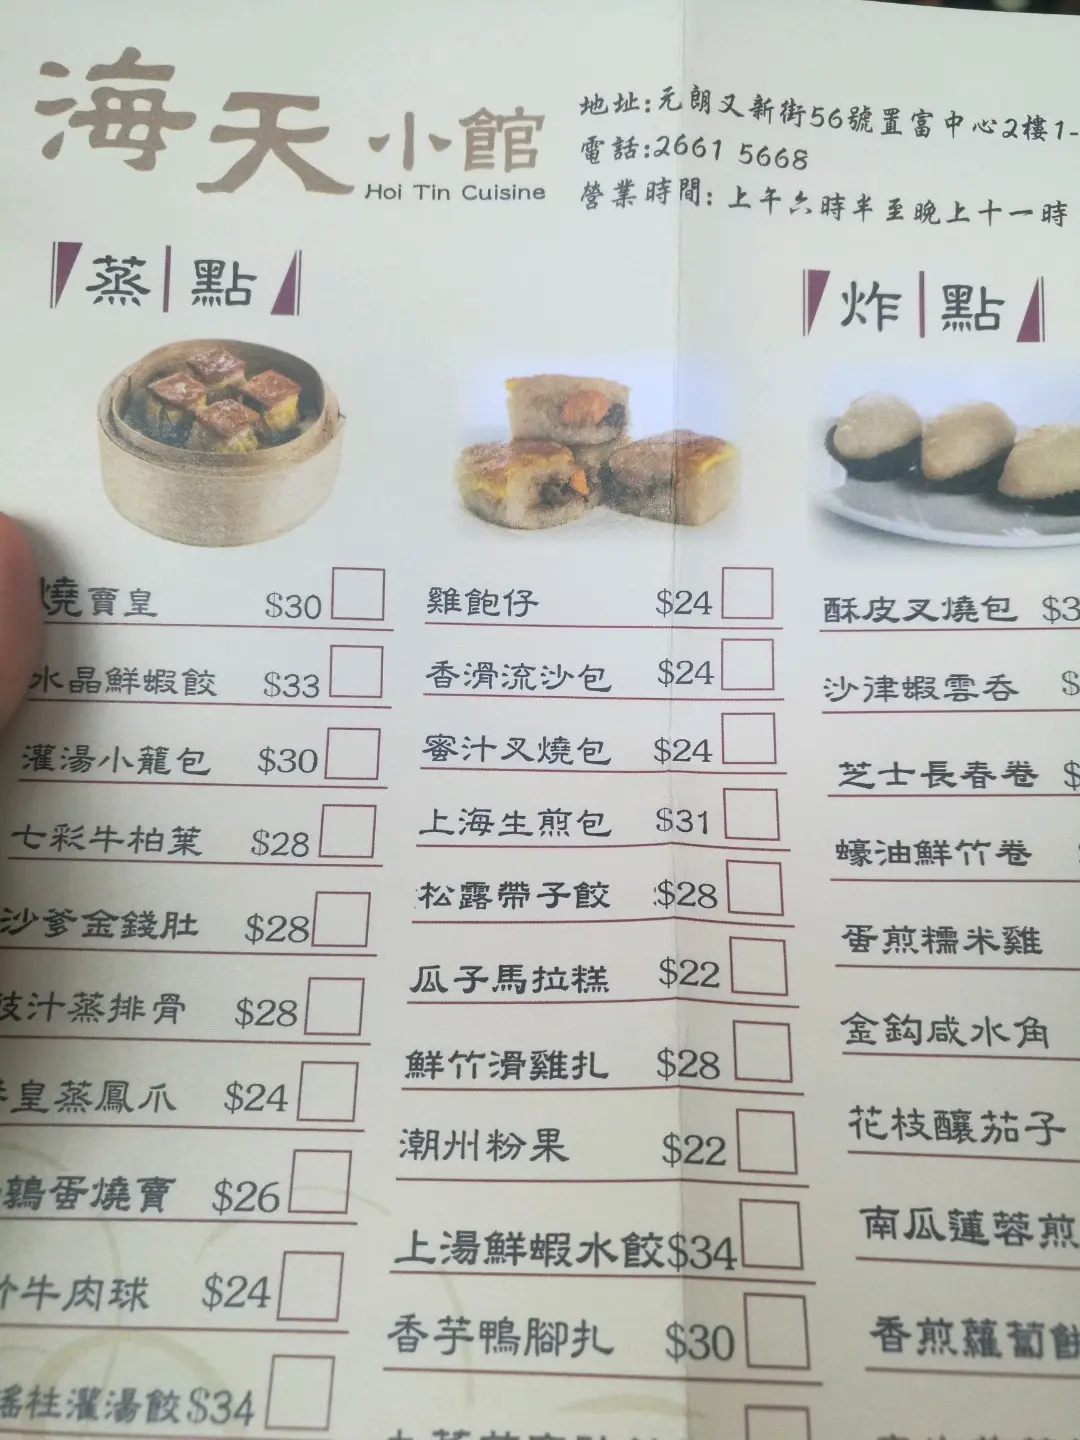 海天小館
Hoi Tin Cuisine
地址:元朗又新街56號置富中心2樓1-
電話:2661 5668
營業時間: 上午六時半至晚上十一時
蒸點
燒賣皇 $30
水晶鮮蝦餃 $33
灌湯小籠包 $30
七彩牛柏葉 $28
沙爹金錢肚 $28
豉汁蒸排骨 $28
皇蒸鳳爪 $24
鶉蛋燒賣 $26
牛肉球 $24
瑤柱灌湯餃 $34
雞飽仔 $24
香滑流沙包 $24
蜜汁叉燒包 $24
上海生煎包 $31
松露帶子餃 $28
瓜子馬拉糕 $22
鮮竹滑雞扎 $28
潮州粉果 $22
上湯鮮蝦水餃 $34
香芋鴨腳扎 $30
炸點
酥皮叉燒包 $3
沙律蝦雲吞 $
芝士長春卷 $
蠔油鮮竹卷
蛋煎糯米雞
金鈎咸水角
花枝釀茄子
南瓜蓮蓉煎
香煎蘿蔔餅